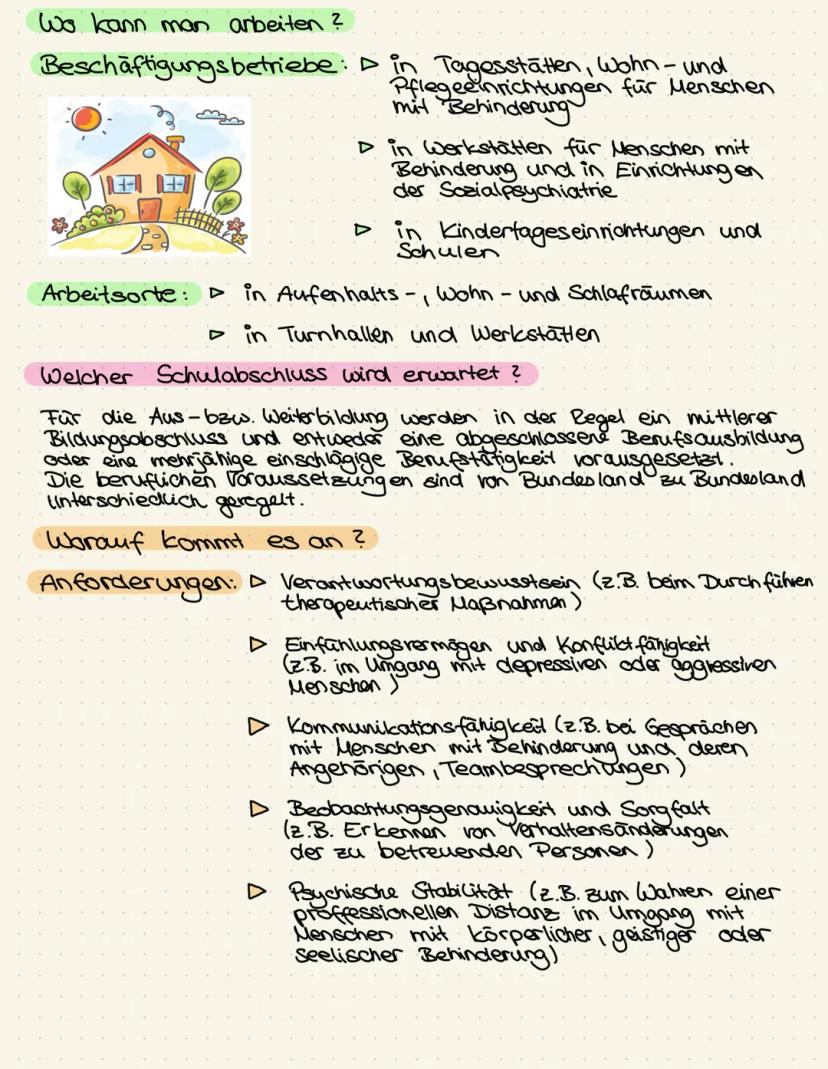 Wo kann man arbeiten?
Beschäftigungsbetriebe: ▷ in Tagesstätten, Wohn- und
Pflegeeinrichtungen für Menschen
mit Behinderung
▷ in Werkstätten für Menschen mit
Behinderung und in Einrichtungen
der Sozialpsychiatrie
▷ in Kindertageseinrichtungen und
Schulen
Arbeitsorte: ▷ in Aufenthalts-, Wohn- und Schlafräumen
▷ in Turnhallen und Werkstätten
Welcher Schulabschluss wird erwartet?
Für die Aus- bzw. Weiterbildung werden in der Regel ein mittlerer
Bildungsabschluss und entweder eine abgeschlossene Berufsausbildung
oder eine mehrjährige einschlägige Berufstätigkeit vorausgesetzt.
Die beruflichen Voraussetzungen sind von Bundesland zu Bundesland
unterschiedlich geregelt.
Worauf kommt es an?
Anforderungen: ▷ Verantwortungsbewusstsein (z.B. beim Durchführen
therapeutischer Maßnahmen)
▷ Einfühlungsvermögen und Konfliktfähigkeit
(z.B. im Umgang mit depressiven oder aggressiven
Menschen)
▷ Kommunikationsfähigkeit (z.B. bei Gesprächen
mit Menschen mit Behinderung und deren
Angehörigen, Teambesprechungen)
▷ Beobachtungsgenauigkeit und Sorgfalt
(z.B. Erkennen von Verhaltensänderungen
der zu betreuenden Personen)
▷ Psychische Stabilität (z.B. zum Wahren einer
proffessionellen Distanz im Umgang mit
Menschen mit körperlicher, geistiger oder
seelischer Behinderung)